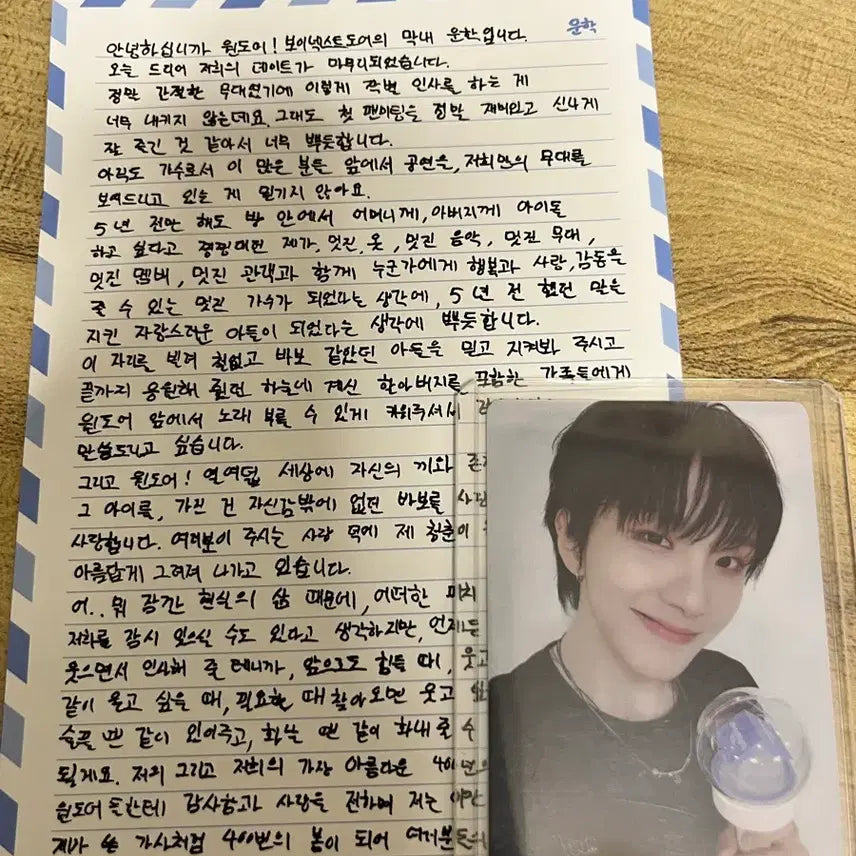 운학
안녕하십니까 원도어! 보이넥스트도어의 막내 운학입니다.
오늘 드디어 저희의 데이트가 마무리되었습니다.
정말 간절한 무대였기에 이렇게 작별 인사를 하는 게
너무 내키지 않은데요. 그래도 첫 팬미팅을 정말 재미있고 신나게
잘 즐긴 것 같아서 너무 뿌듯합니다.
아직도 가수로서 이 많은 분들 앞에서 공연을, 저희만의 무대를
보여드리고 있는 게 믿기지 않아요.
5년 전만 해도 방 안에서 어머니께, 아버지께 아이돌
하고 싶다고 찡찡대던 제가, 멋진 옷, 멋진 음악, 멋진 무대,
멋진 멤버, 멋진 관객과 함께 누군가에게 행복과 사랑, 감동을
줄 수 있는 멋진 가수가 되었다는 생각에, 5년 전 했던 말을
지킨 자랑스러운 아들이 되었다는 생각에 뿌듯합니다.
이 자리를 빌려 철없고 바보 같았던 아들을 믿고 지켜봐 주시고
끝까지 응원해 줬던 하늘에 계신 할아버지를 포함한 가족들에게
원도어 앞에서 노래 부를 수 있게 키워주셔서
말씀드리고 싶습니다.
그리고 원도어! 열여덟 세상에 자신의 끼와
그 아이를, 가진 건 자신감밖에 없던 바보를
사랑합니다. 여러분이 주시는 사랑 덕에 제 청춘이
아름답게 그려져 나가고 있습니다.
어.. 뭐 잠깐 현실의 삶 때문에, 어떠한
저희를 잠시 잊으실 수도 있다고 생각하지만, 언제든
웃으면서 인사해 줄 테니까, 앞으로도 힘들 때, 웃고
같이 울고 싶을 때, 필요할 때 찾아오면 웃고
슬플 땐 같이 있어주고, 화날 땐 같이 화내 줄 수
될게요. 저의 그리고 저희의 가장 아름다운
원도어 둘한테 감사함과 사랑을 전하며 저는 이만
제가 쓴 가사처럼 400번의 봄이 되어